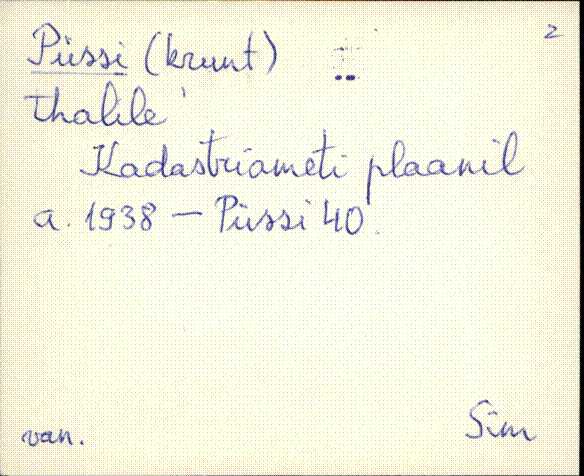 Püssi (krunt) 2
Kadastriameti plaanil
a. 1938 — Püssi 40.
van. Sim